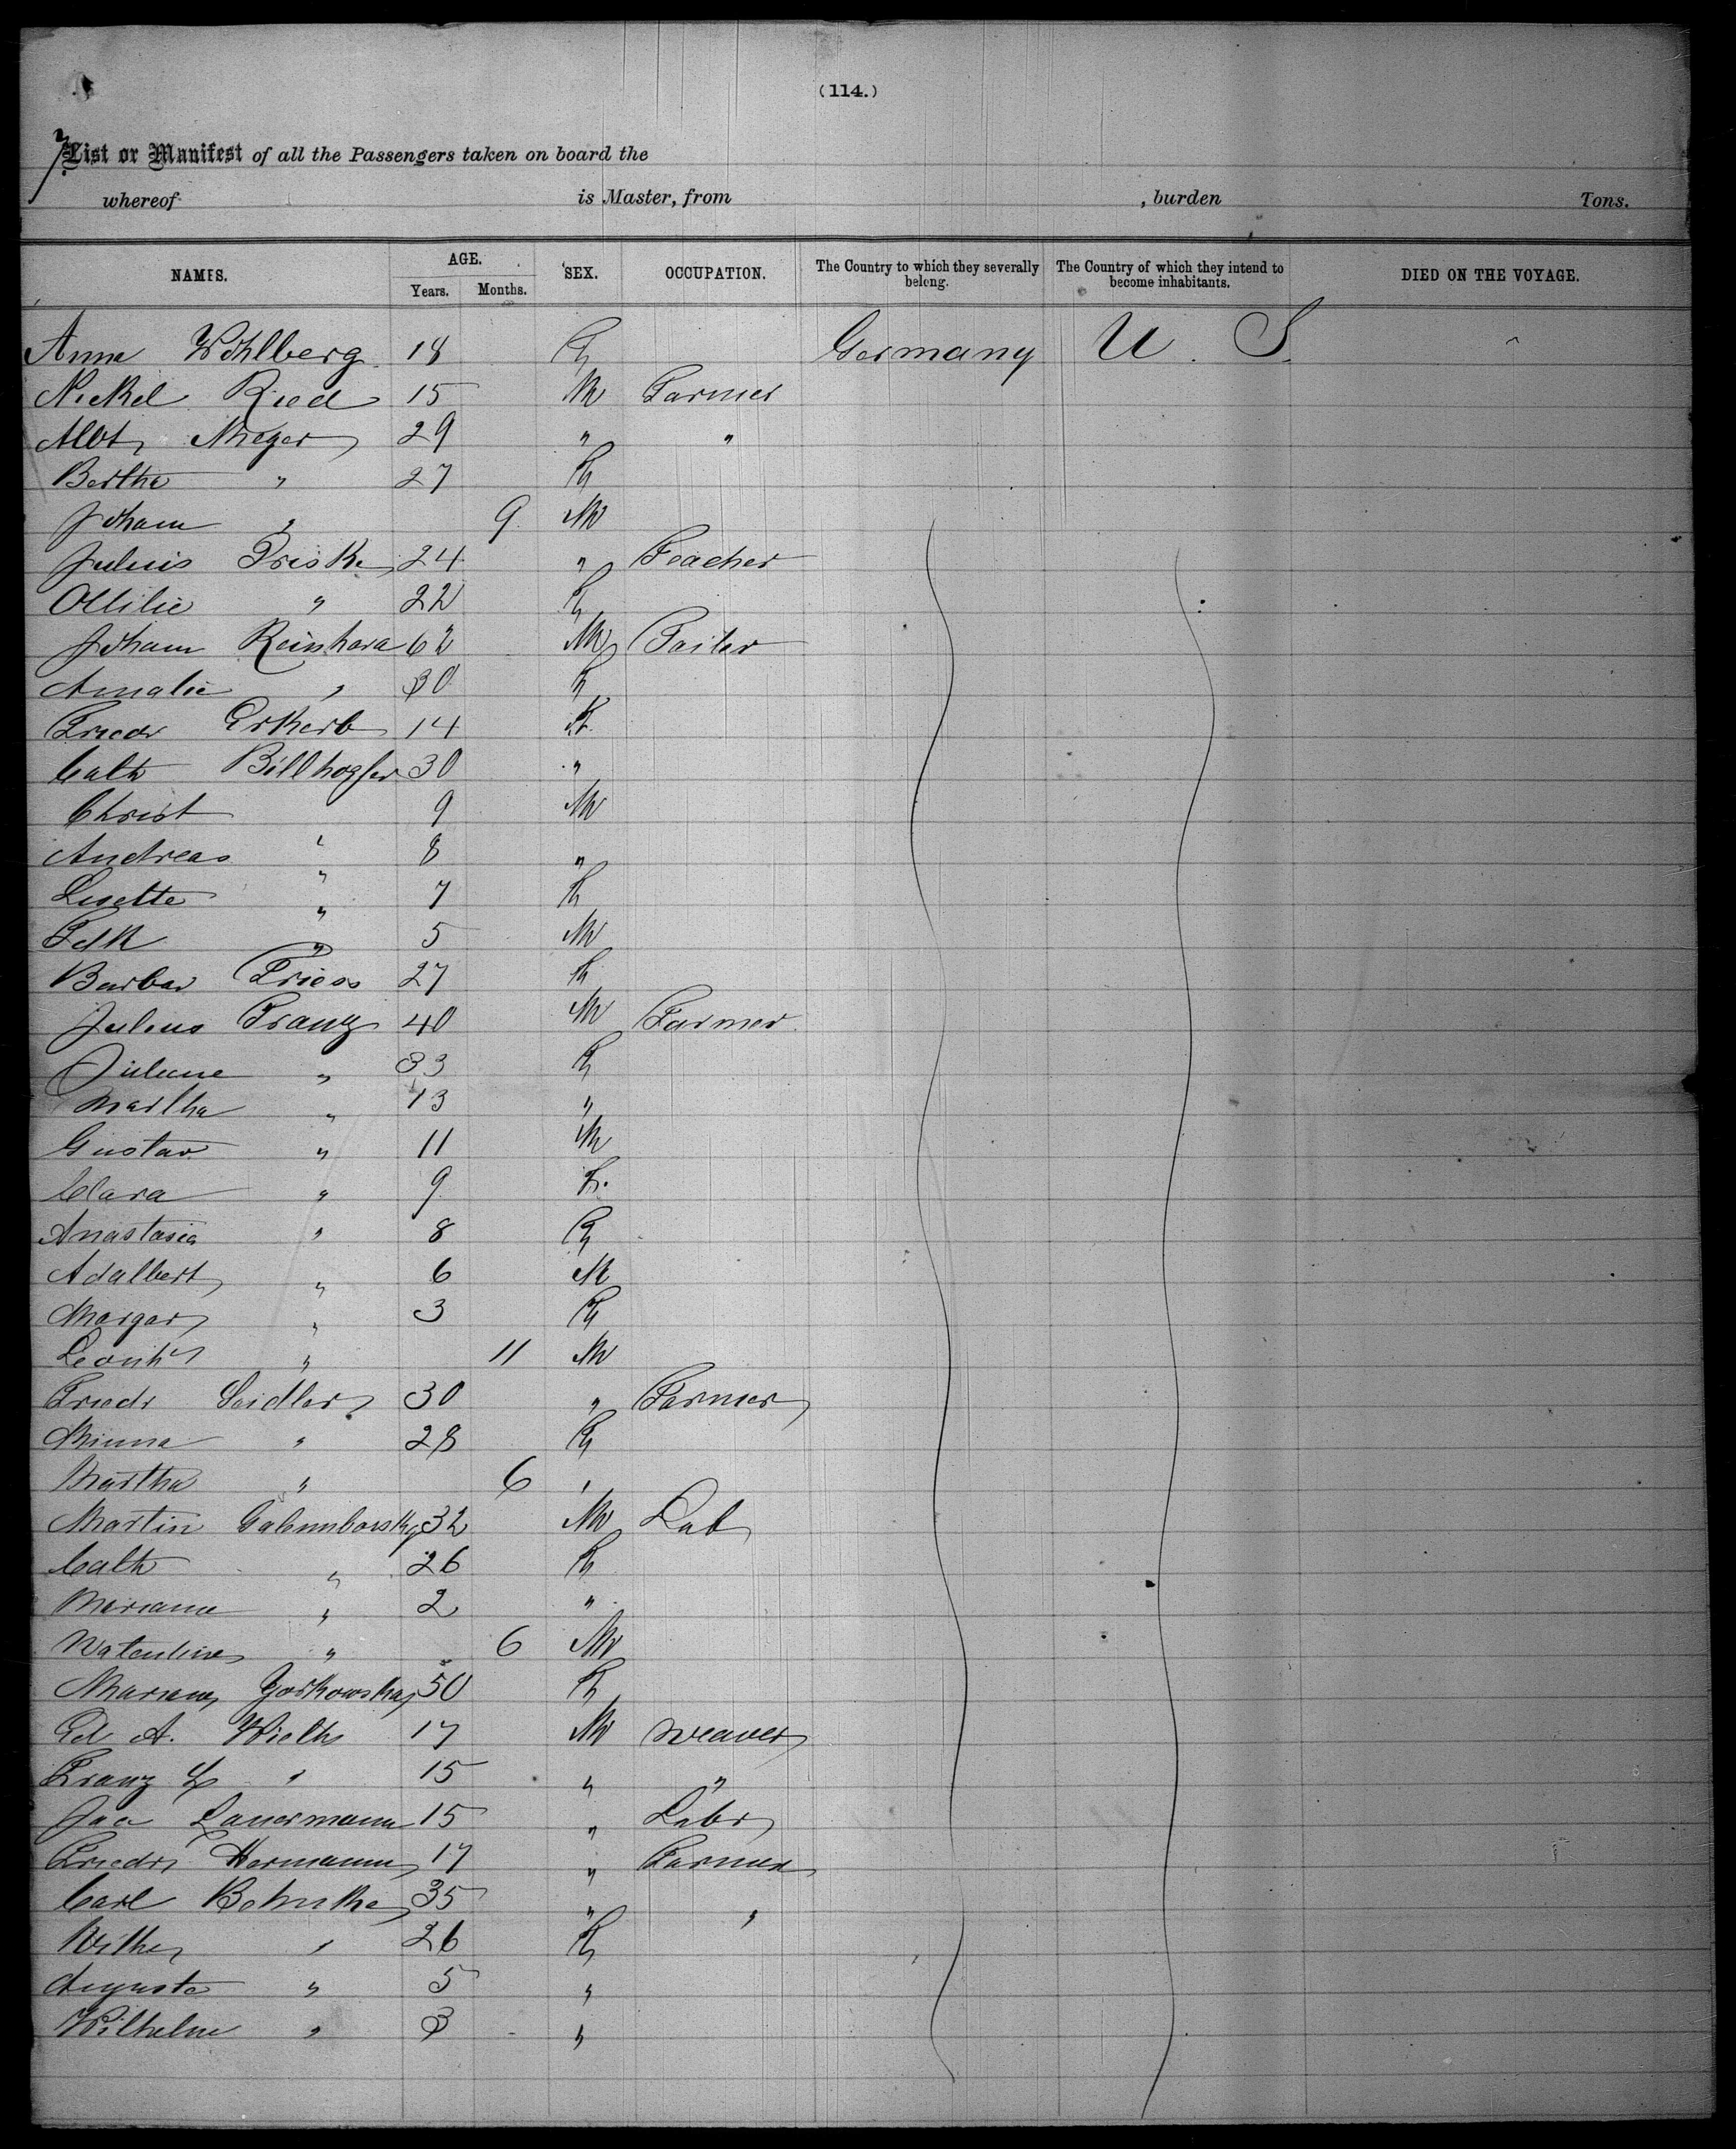 (114.)
7. List or Manifest of all the Passengers taken on board the
whereof is Master, from , burden Tons.
NAMES. AGE. Years. Months. SEX. OCCUPATION. The Country to which they severally belong. The Country of which they intend to become inhabitants. DIED ON THE VOYAGE.
Anna Wohlberg 18 F Germany U. S.
Nickel Ried 15 M Farmer
Albt Meyer 29 " "
Bertha " 27 F
Johann " 9 M
Julius Priske 24 " Teacher
Ottilie " 22 F
Johann Reinhard 62 M Tailor
Amalie " 30 F
Friedr 14 F
Cath 30 "
Christ 9 M
Andreas " 8 "
Lisette " 7 F
Fdk " 5 M
Barbar Friess 27 F
Julius Franz 40 M Farmer
Juliane " 33 F
Martha " 13 "
Gustav " 11 M
Clara " 9 F.
Anastasia " 8 F
Adalbert " 6 M
Margar " 3 F
Leonhd " 11 M
Friedr Seidler 30 " Farmer
Minna " 28 F
Martha " 6 "
Martin 32 M Lab
Cath " 26 F
Mariana " 2 "
" 6 M
Mariana 50 F
Ed A. Wieths 17 M Weaver
Franz L " 15 " "
Jac Lauermann 15 " Labr
Friedr Hermann 17 " Farmer
Carl 35 " "
Wilhe " 26 F
Auguste " 5 "
Wilhelm " 3 "